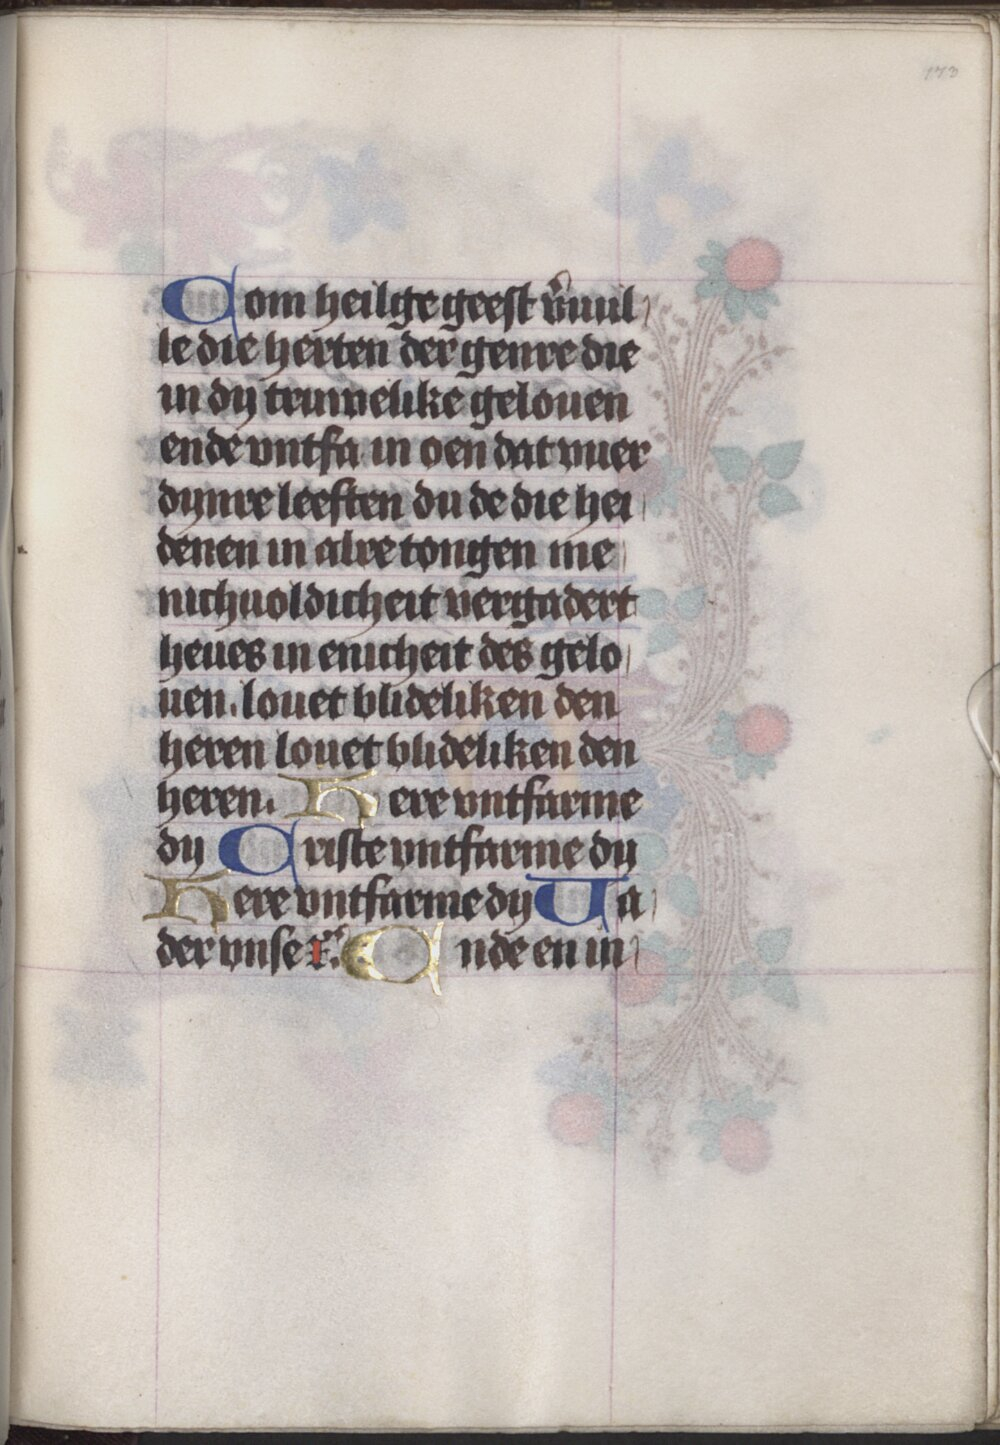 173
Com heilge geest v̄uul
le die herten der genre die
in dy truwelike gelouen
ende vntfa in oen dat vuer
dynre leeften du de die hei
denen in alre tongen me
nichuoldicheit vergadert
heues in enicheit des gelo
uen. louet blideliken den
heren louet blideliken den
heren. Here vntfarme
dy Criste vntfarme dy
Here vntfarme dy Va
der vnse Ende en in